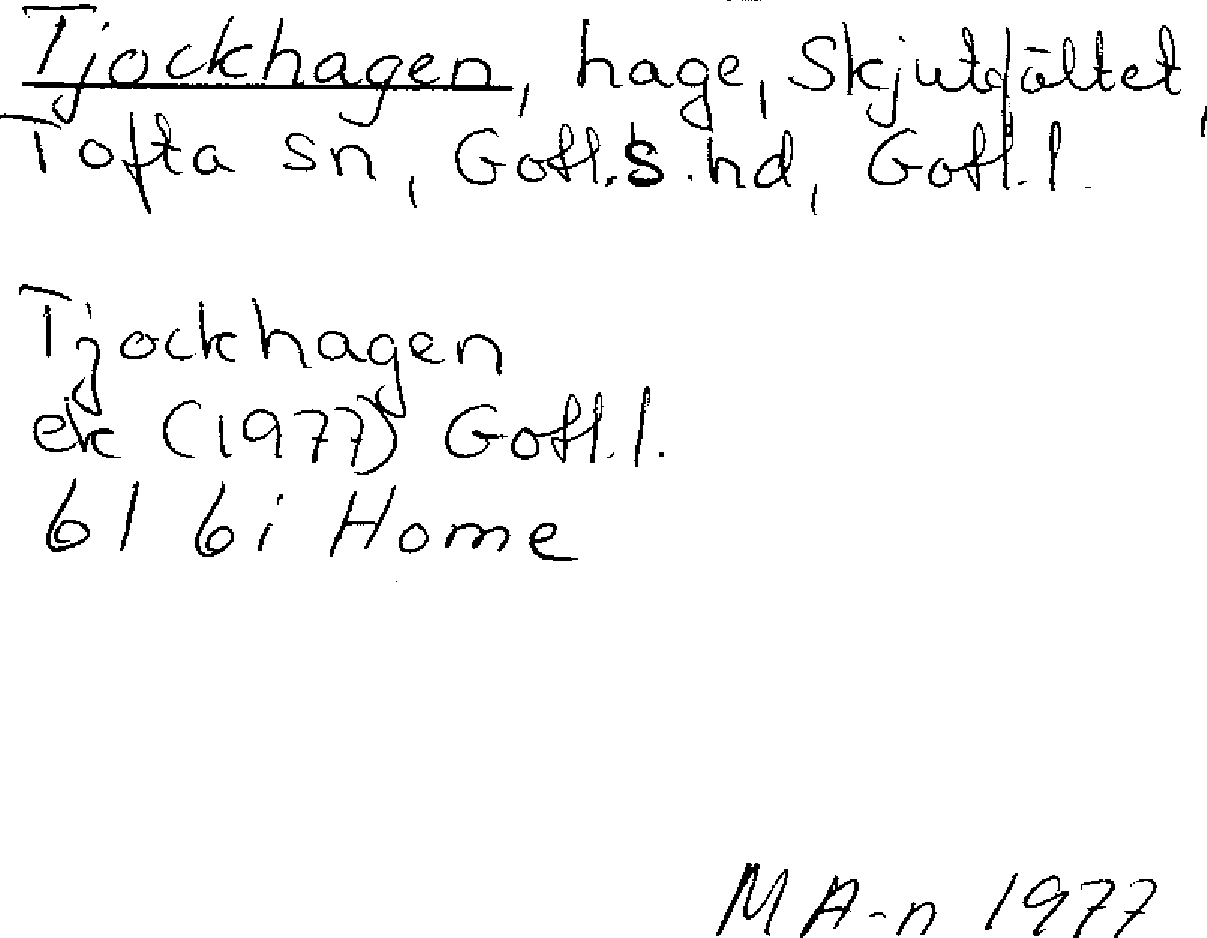 Tjockhagen, hage, Skjutfältet,
Tofta sn, Gotl.s.hd, Gotl.l.
Tjockhagen
ek (1977) Gotl.l.
6I 6i Home
MA-n 1977